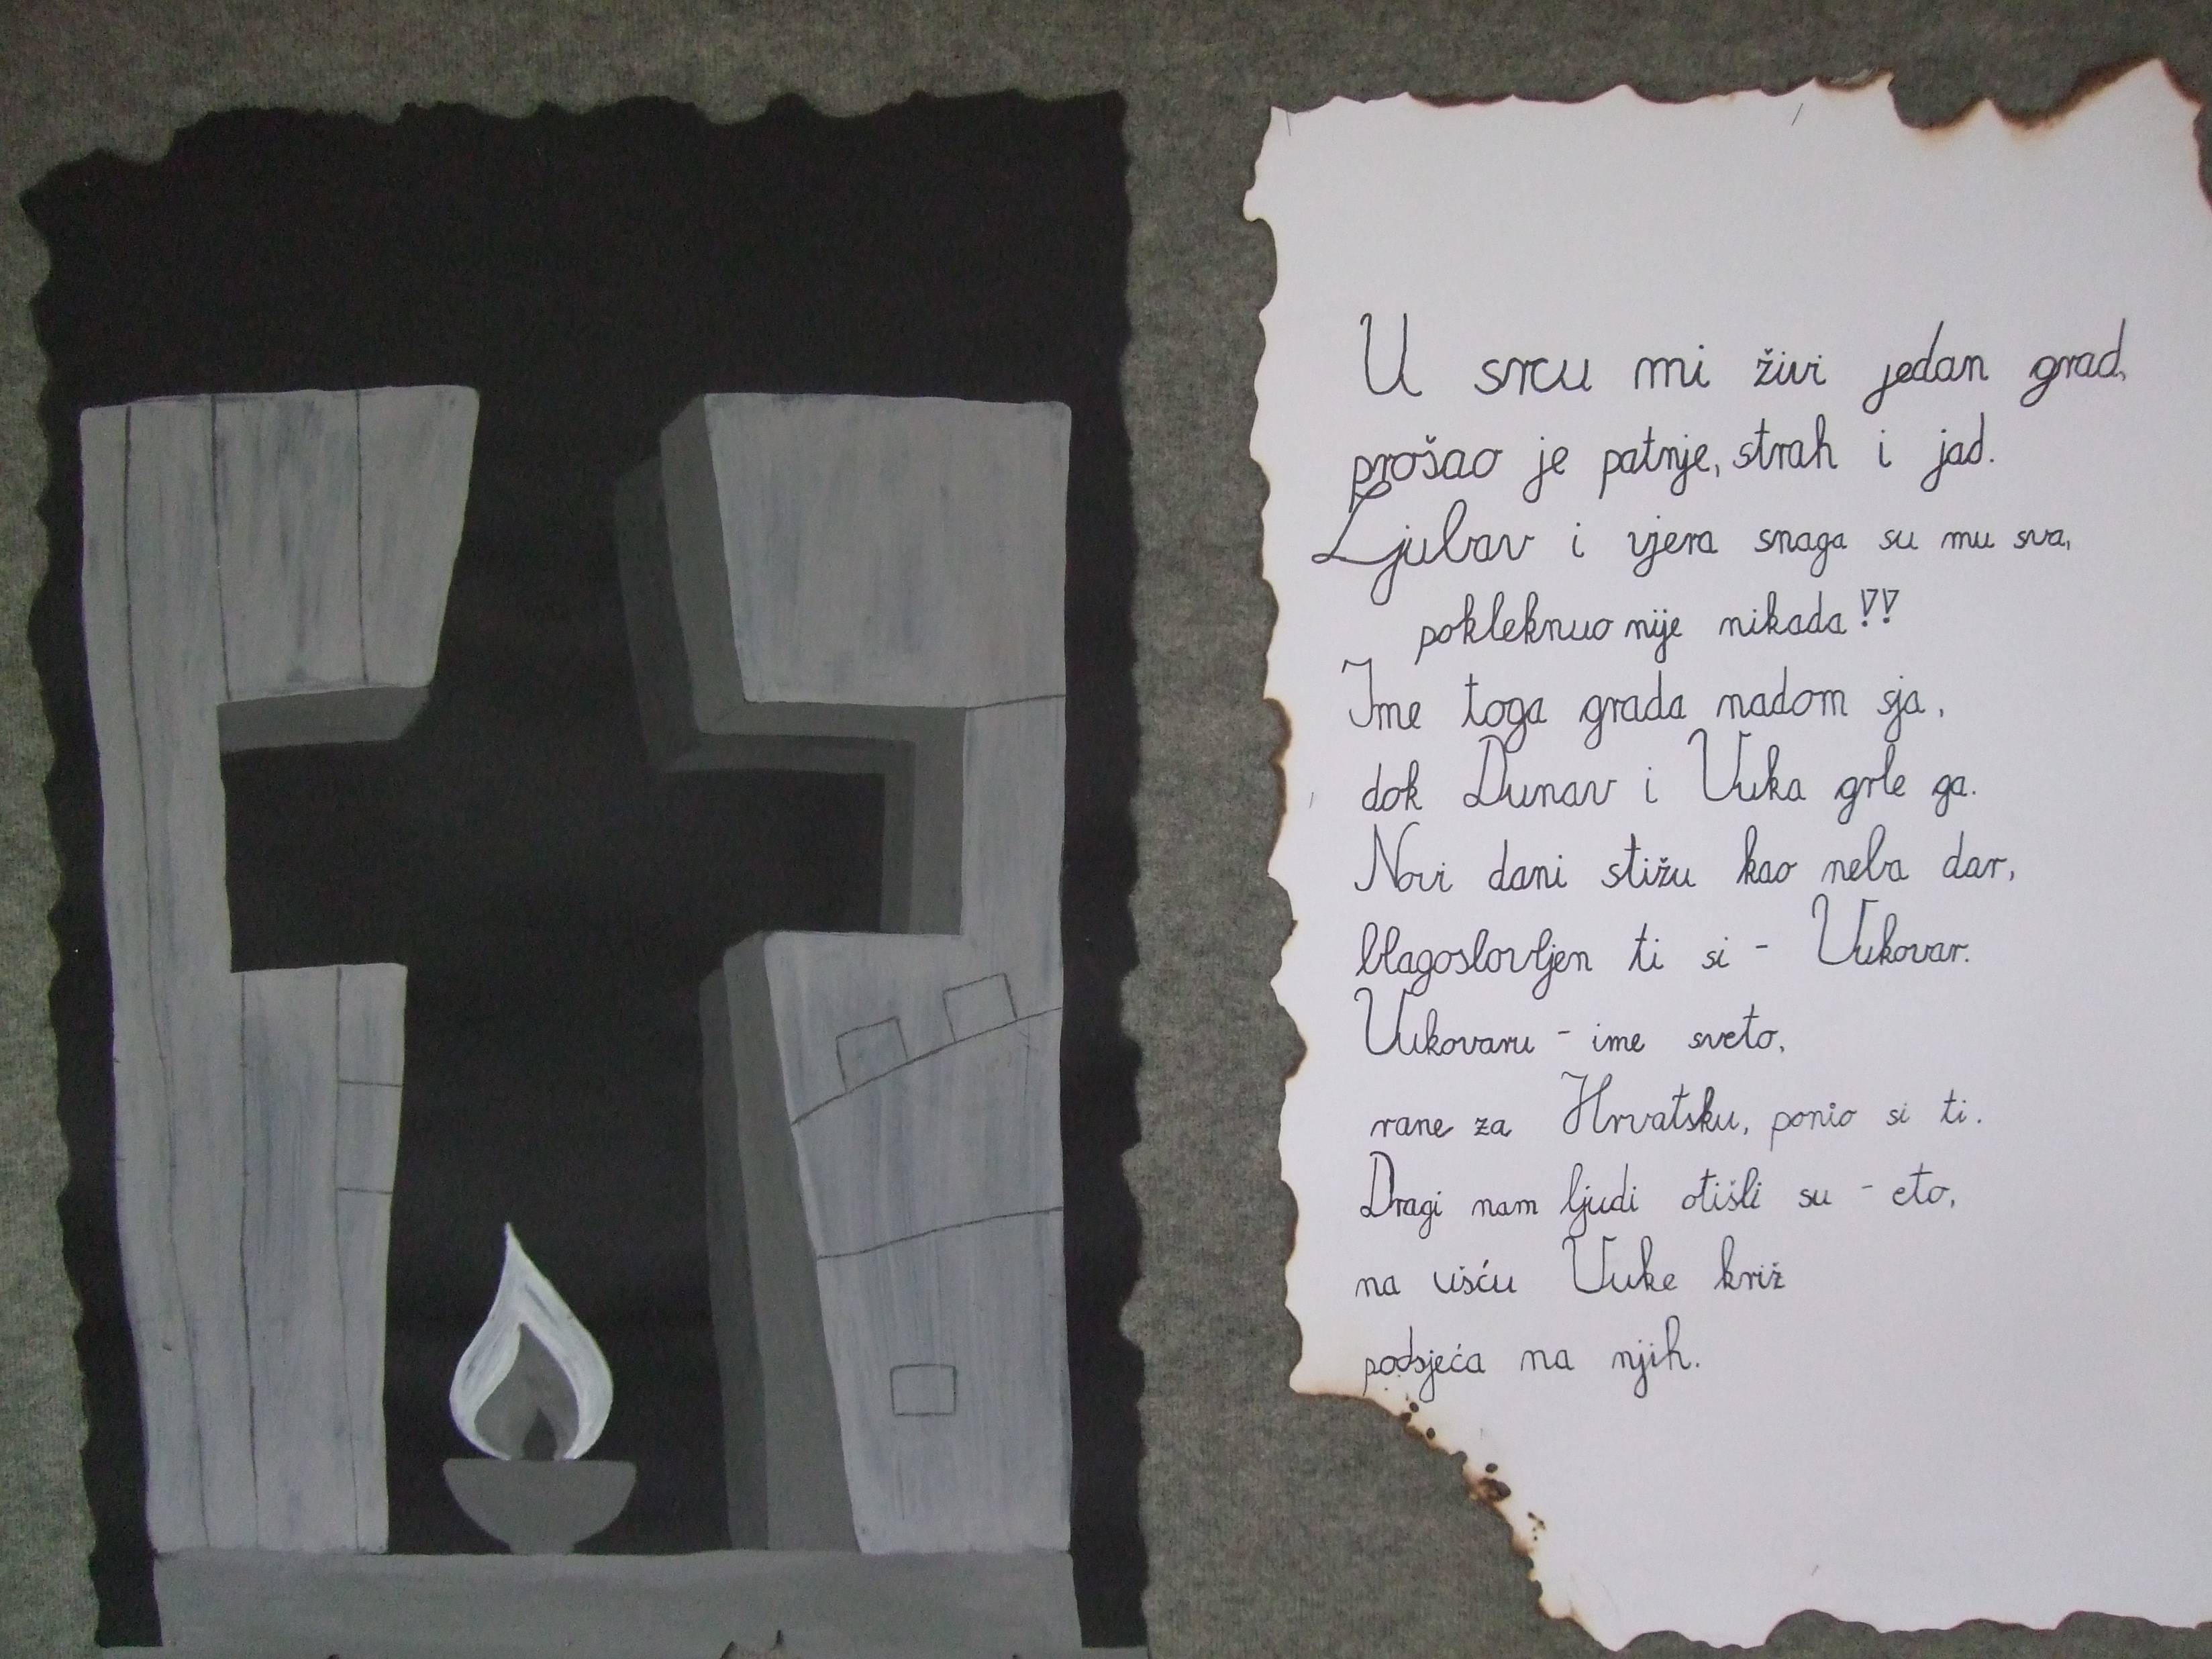 U srcu mi živi jedan grad,
prošao je patnje, strah i jad.
Ljubav i vjera snaga su mu sva,
pokleknuo nije nikada!!
Ime toga grada nadom sja,
dok Dunav i Vuka grle ga.
Novi dani stižu kao neba dar,
blagoslovljen ti si - Vukovar.
Vukovaru - ime sveto,
rane za Hrvatsku, ponio si ti.
Dragi nam ljudi otišli su - eto,
na ušću Vuke križ
podsjeća na njih.